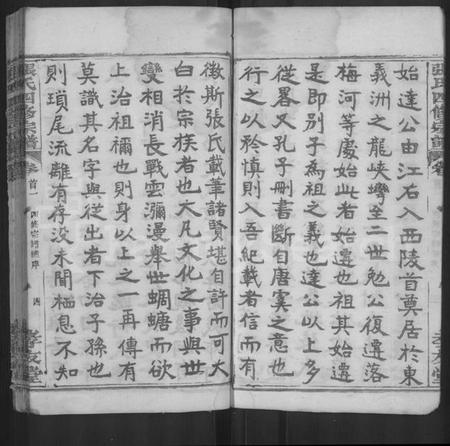 始達公由江右入西陵首奠居於東
義洲之龍峽嶴至二世勉公復遷落
梅河等處始此者始遷也祖其始遷
是即别子為祖之義也達公以上多
從畧又孔子刪書斷自唐虞之意也
行之以矜慎則入吾紀載者信而有
徵斯張氏載筆諸賢堪自許而可大
白於宗族者也大凡文化之事與世
變相消長戰雲瀰漫舉世蜩螗而欲
上治祖禰也則身以上之一再傳有
莫識其名字與從出者下治子孫也
則瑣尾流離有存没未聞栖息不知
張氏四修宗譜
卷首一
四
孝友堂